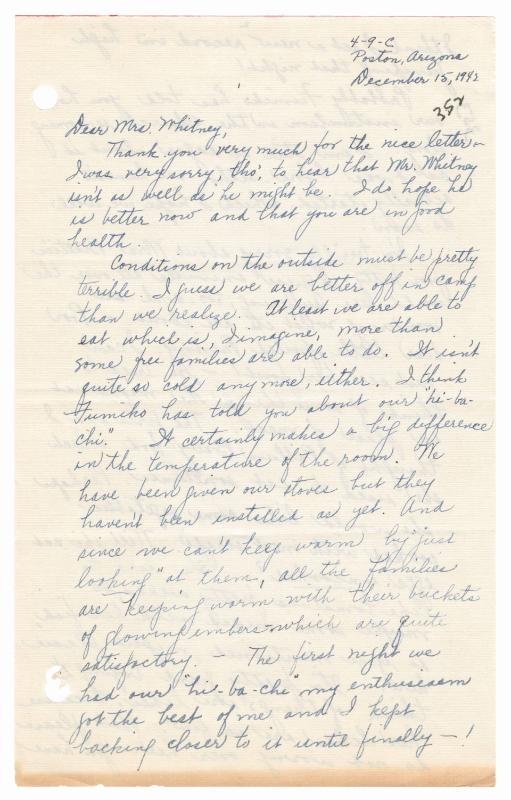 4-9-C
Poston, Arizona
December 15, 1942
352
Dear Mrs. Whitney,
Thank you very much for the nice letter -
I was very sorry, tho', to hear that Mr. Whitney
isn't as well as he might be. I do hope he
is better now and that you are in good
health.
Conditions on the outside must be pretty
terrible. I guess we are better off in camp
than we realize. At least we are able to
eat which is, I imagine, more than
some free families are able to do. It isn't
quite so cold any more, either. I think
Fumiko has told you about our "hi-ba-
chi." It certainly makes a big difference
in the temperature of the room. We
have been given our stoves but they
haven't been installed as yet. And
since we can't keep warm by "just
looking" at them, all the families
are keeping warm with their buckets
of glowing embers - which are quite
satisfactory. - The first night we
had our "hi-ba-chi" my enthusiasm
got the best of me and I kept
backing closer to it until finally - !